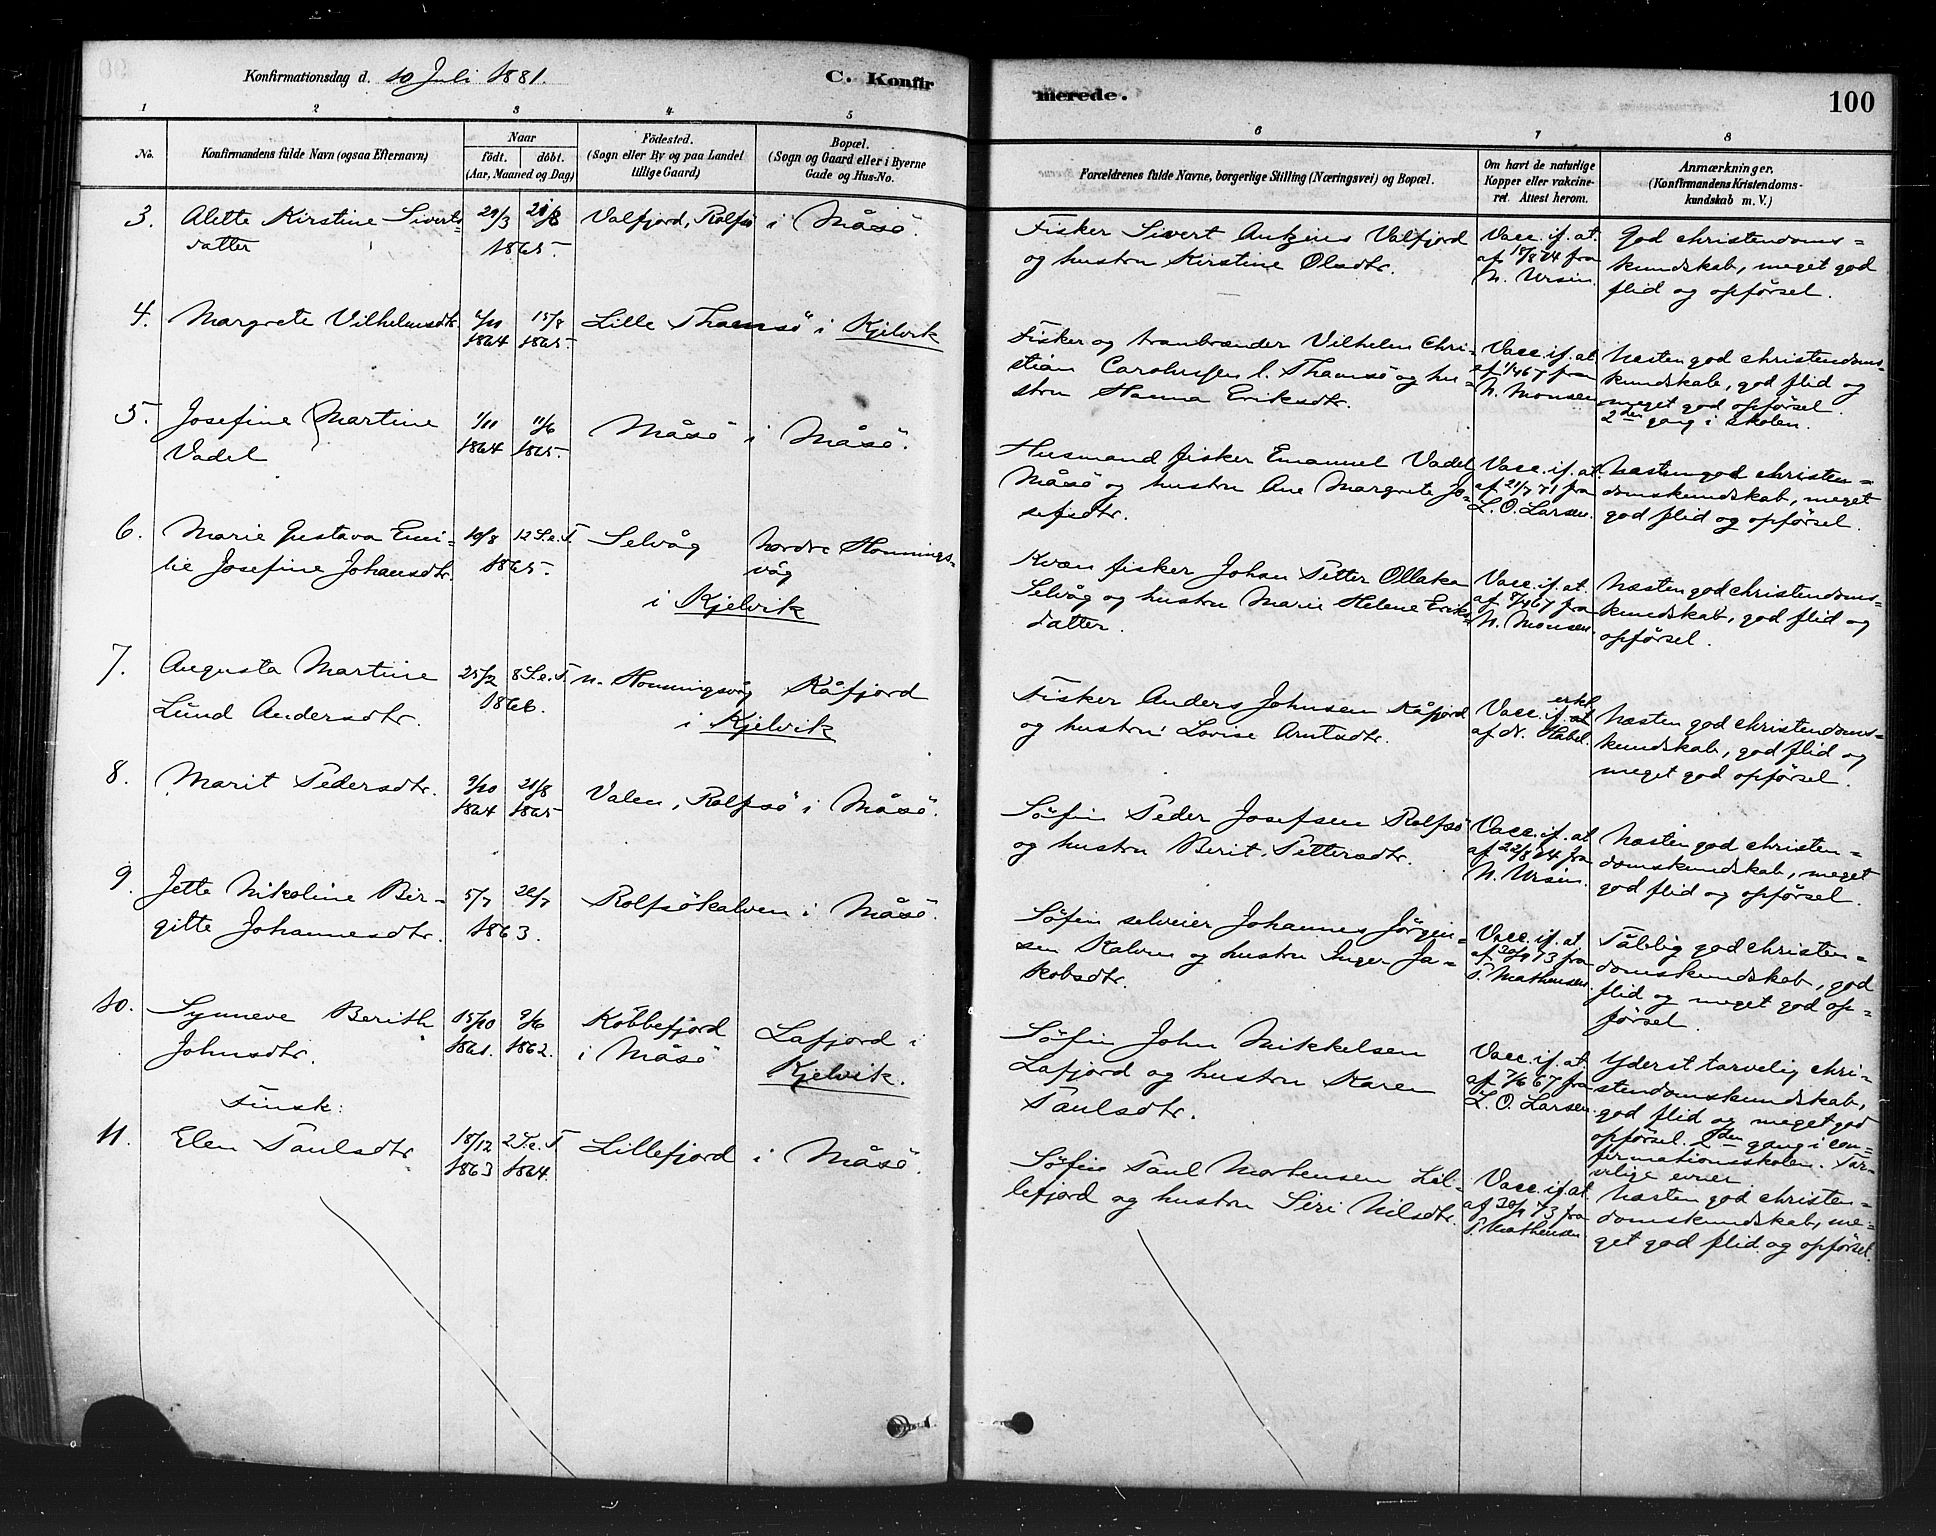 Konfirmationsdag d. 10 Juli 1881.
C. Konfirmerede.
100
1 2 3 4 5 6 7 8
No.
Konfirmandens fulde Navn (ogsaa Efternavn)
Naar
födt. döbt.
(Aar, Maaned og Dag)
Födested.
(Sogn eller By og paa Landet
tillige Gaard)
Bopæl.
(Sogn og Gaard eller i Byerne
Gade og Hus-No.
Forældrenes fulde Navne, borgerlige Stilling (Næringsvei) og Bopæl.
Om havt de naturlige
Kopper eller vakcine-
ret. Attest herom.
Anmærkninger.
(Konfirmandens Kristendoms-
kundskab m. V.)
3. Alette Kirstine Siverts-
datter
1865.
Valfjord, Rolfsö i Måsö.
Fisker Sivert Valfjord
og hustru Kirstine Olsdtr.
Vacc. if. at.
af 18/8 74 fra
N. Ursin.
God christendoms-
kundskab, meget god
flid og opförsel.
4. Margrete Vilhelmsdtr.
1864
15/8
1865.
Lille Thamsö i Kjelvik
Fisker og tranbrænder Vilhelm Chri-
stian Carolussen l. Thamsö og hu-
stru Hanna Eriksdtr.
Vacc. if. at
af 67 fra
N. Monsen
Næsten god christendoms-
kundskab, god flid og
meget god opförsel.
2den gang i skolen.
5. Josefine Martine
Vadel
1864
11/6
1865.
Måsö i Måsö.
Husmand fisker Emanuel Vadel
Måsö og hustru Ane Margrete Jo-
sefsdtr.
Vacc. if. at
af 21/7 71 fra
L. O. Larsen.
Næsten god christen-
domskundskab, meget
god flid og opförsel.
6. Marie Gustava Emi-
lie Josefine Johansdtr.
19/8 12 S. e. T.
1865.
Selvåg
nordre Honnings-
våg
i Kjelvik
Kvæn fisker Johan Petter Ollaka
Selvåg og hustru Marie Helene Eriks-
datter.
Vacc. if. at
af 67 fra
N. Monsen.
Næsten god christendoms-
kundskab, god flid og
opförsel.
7. Augusta Martine
Lund Andersdtr.
25/2 8 S. e. T.
1866.
n. Honningsvåg Kåfjord
i Kjelvik
Fisker Anders Johnsen Kåfjord
og hustru Lovise Arntsdtr.
erkl.
Vacc. if. at
af dr. Habel.
Næsten god christendoms-
kundskab, god flid og
meget god opförsel.
8. Marit Pedersdtr.
9/10
1864
20/8
1865
Valen, Rolfsö i Måsö.
Söfin Peder Josefsen Rolfsö
og hustru Berit Pettersdtr.
Vacc. if. at
af 22/8 74 fra
N. Ursin.
Næsten god christen-
domskundskab, meget
god flid og opförsel.
9. Jette Nikoline Bir-
gitte Johannesdtr.
5/7
1863.
Rolfsökalven i Måsö.
Söfin selveier Johannes Jörgen-
sen Kalven og hustru Inger Ja-
kobsdtr.
Vacc. if. at
af 73 fra
P. Mathesen.
Tålelig god christen-
domskundskab, god
flid og meget god op-
försel.
10. Synneve Berith
Johnsdtr.
15/10
1861.
9/6
1862.
Kobbefjord
i Måsö
Lafjord i
Kjelvik.
Söfin John Mikkelsen
Lafjord og hustru Karen
Paulsdtr.
Vacc. if. at
af 7/6 67 fra
L. O. Larsen
Yderst tarvelig chri-
stendomskundskab,
god flid og meget god
opförsel. 2den gang i con-
firmationsskolen. Tar-
velige evner
Finsk:
11. Elen Paulsdtr
18/12
1863
2 S. e. T
1864.
Lillefjord i Måsö.
Söfin Paul Mortensen Lil-
lefjord og hustru Siri Nilsdtr.
Vacc. if. at
af 73 fra
P. Mathesen
Næsten god christen-
domskundskab, me-
get god flid og opförsel.